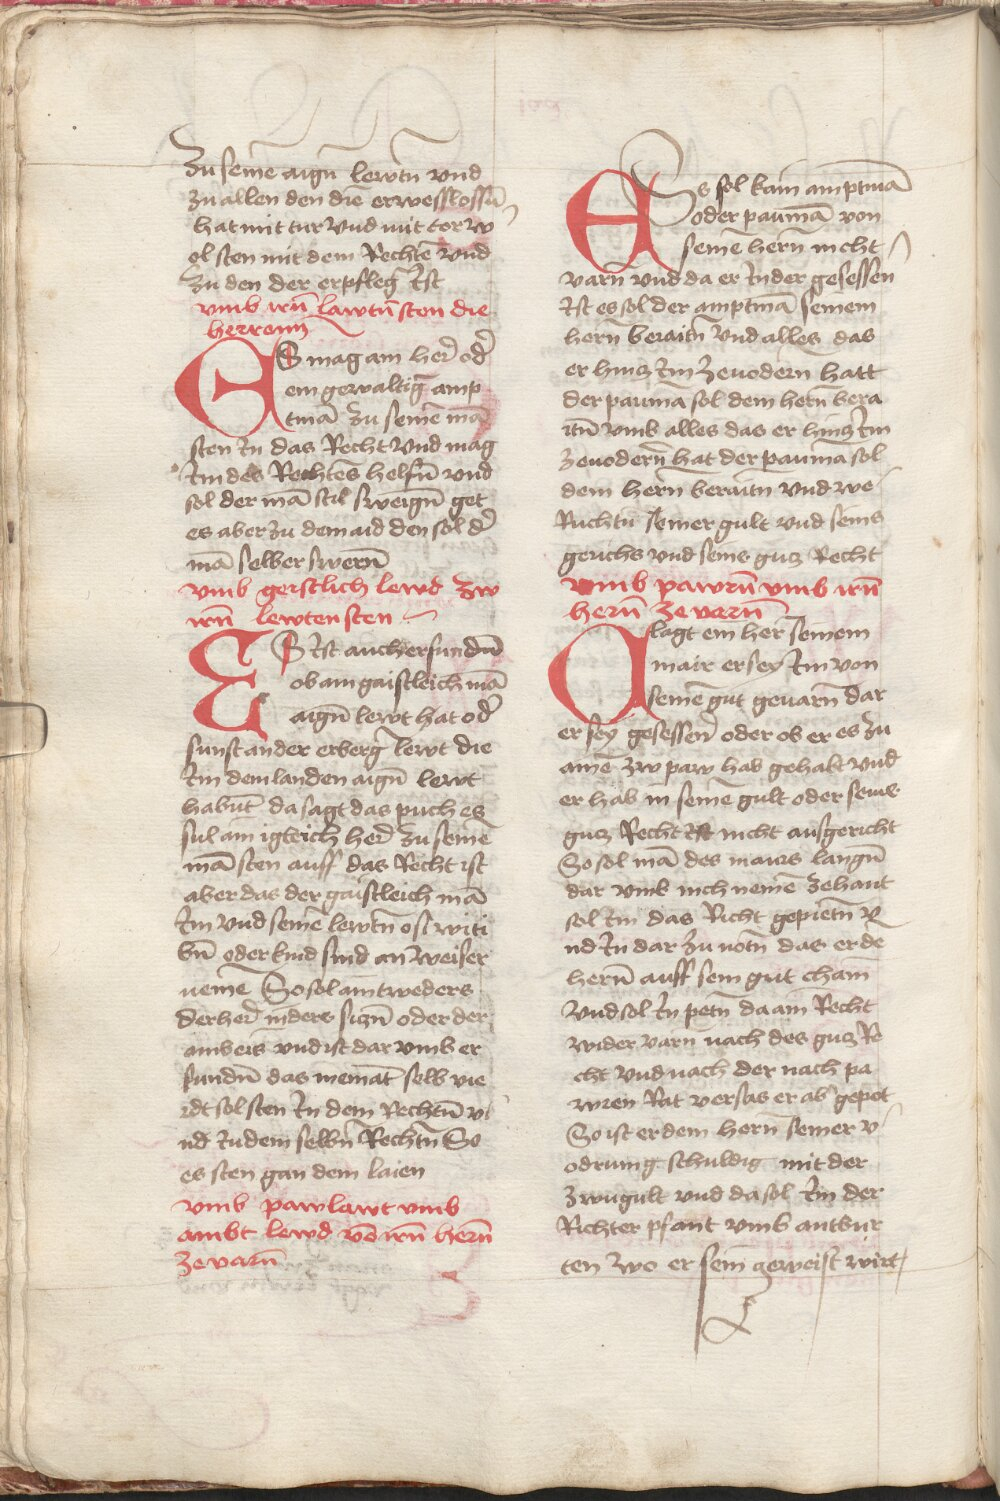 Zu seinē aigñ lewtñ vnd
Zu allen den die erwesslossñ
hat mit tur Vnd mit tor w
ol sten mit dem Rechtē vnd
Zu den der er pfleg̃ Ist
vmb irñ lawtñ sten die
herrenn
ES mag am her̃ od̃
ein gewaltig̃ amp
tmā zu seinē mā
sten In das Recht Vnd mag
Im des Rechtēs helfñ vnd
sol der mā stil sweigñ get
es aber zu dem aid den sol d̃
mā selber swerñ
vmb geistlich lewd zw
irñ lewten sten
ES Ist auch erfundñ
ob ain gaistleich mā
aigñ lewt hat od̃
sunst ander erberg̃ lewt die
Im dem landen aigñ lewt
habnt̃ da sagt das puch es
sul ain igleich her̃ zu seinē
mā sten auff das Recht ist
aber das der gaistleich mā
Im vnd seinē lewtñ ost witi
bñ oder kind sind an weiser
nemē So sol aintweders
der her̃ inders siczñ oder der
ambeis vnd ist dar vmb er
fundñ das niemāt selb vie
rdt sol sten In dem Rechtñ v
nd In dem selbñ Rechtñ So
es sten gan dem laien
vmb pawlawt vmb
ambt lewd võ irñ herñ
ze varñ
ES sol kain amptmā
oder paumā von
seinē herñ nicht
varñ vnd da er Inder gesessen
Ist es sol der amptmā seinem
herñ beraitñ vnd alles das
er hincz Im ze vodern̄ hatt
der paumā sol dem herñ bera
itñ vmb alles das er hincz Im
ze voderñ hat der paumā sol
dem herñ beraitñ vnd we
Ruchtñ seiner gult vnd seins
gerichs vnd seins gucz Recht
vmb pawrñ vmb irñ
herñ ze varñ
Clagt ein her seinem
mair er sey Im von
seinē gut geuarñ dar
er sey gesessen̄ oder ob er es zu
ainē zw paw hab gehabt vnd
er hab in seinē gult oder seins
gucz Recht Ist nicht ausgericht
So sol mā des mairs langñ
dar vmb nich nemē zehant
sol Im das Richt gepietñ v
nd In dar zu notñ das er de
herñ auff sein gut cham
Vnd sol In petñ da ain Recht
wider varn nach des gucz Re
cht vnd nach der nach pa
wren Rat versas er ab gepot
So ist er dem herñ seiner v
odrung schuldig mit der
zwugult vnd da sol Im der
Richter pfant vmb antbur
ten zwo er sein geweist wirt